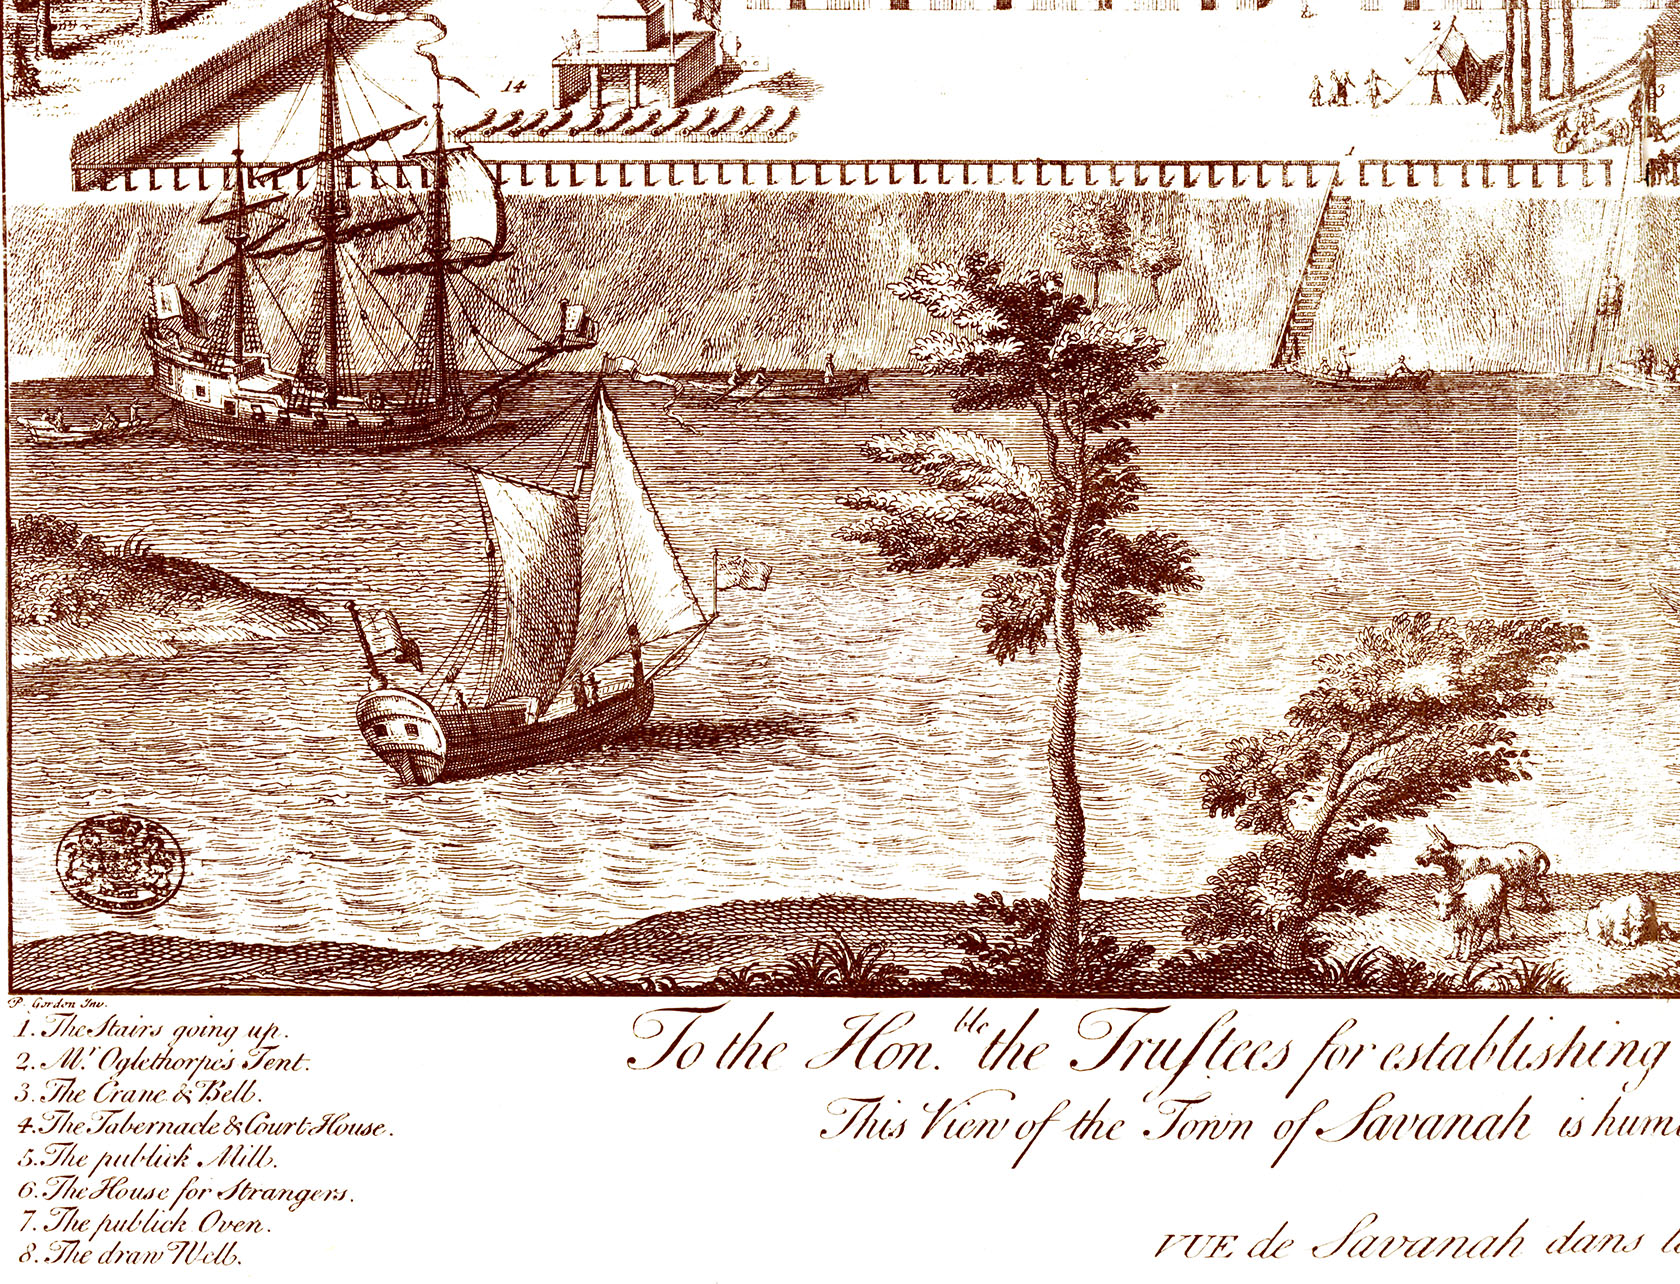 14
2
3
1
P. Gordon Inv.
1. The Stairs going up.
2. Mr. Oglethorpe's Tent.
3. The Crane & Bell.
4. The Tabernacle & Court House.
5. The publick Mill.
6. The House for Strangers.
7. The publick Oven.
8. The draw Well.
To the Hon.ble the Trustees for establishing
This View of the Town of Savanah is hum
VUE de Savanah dans